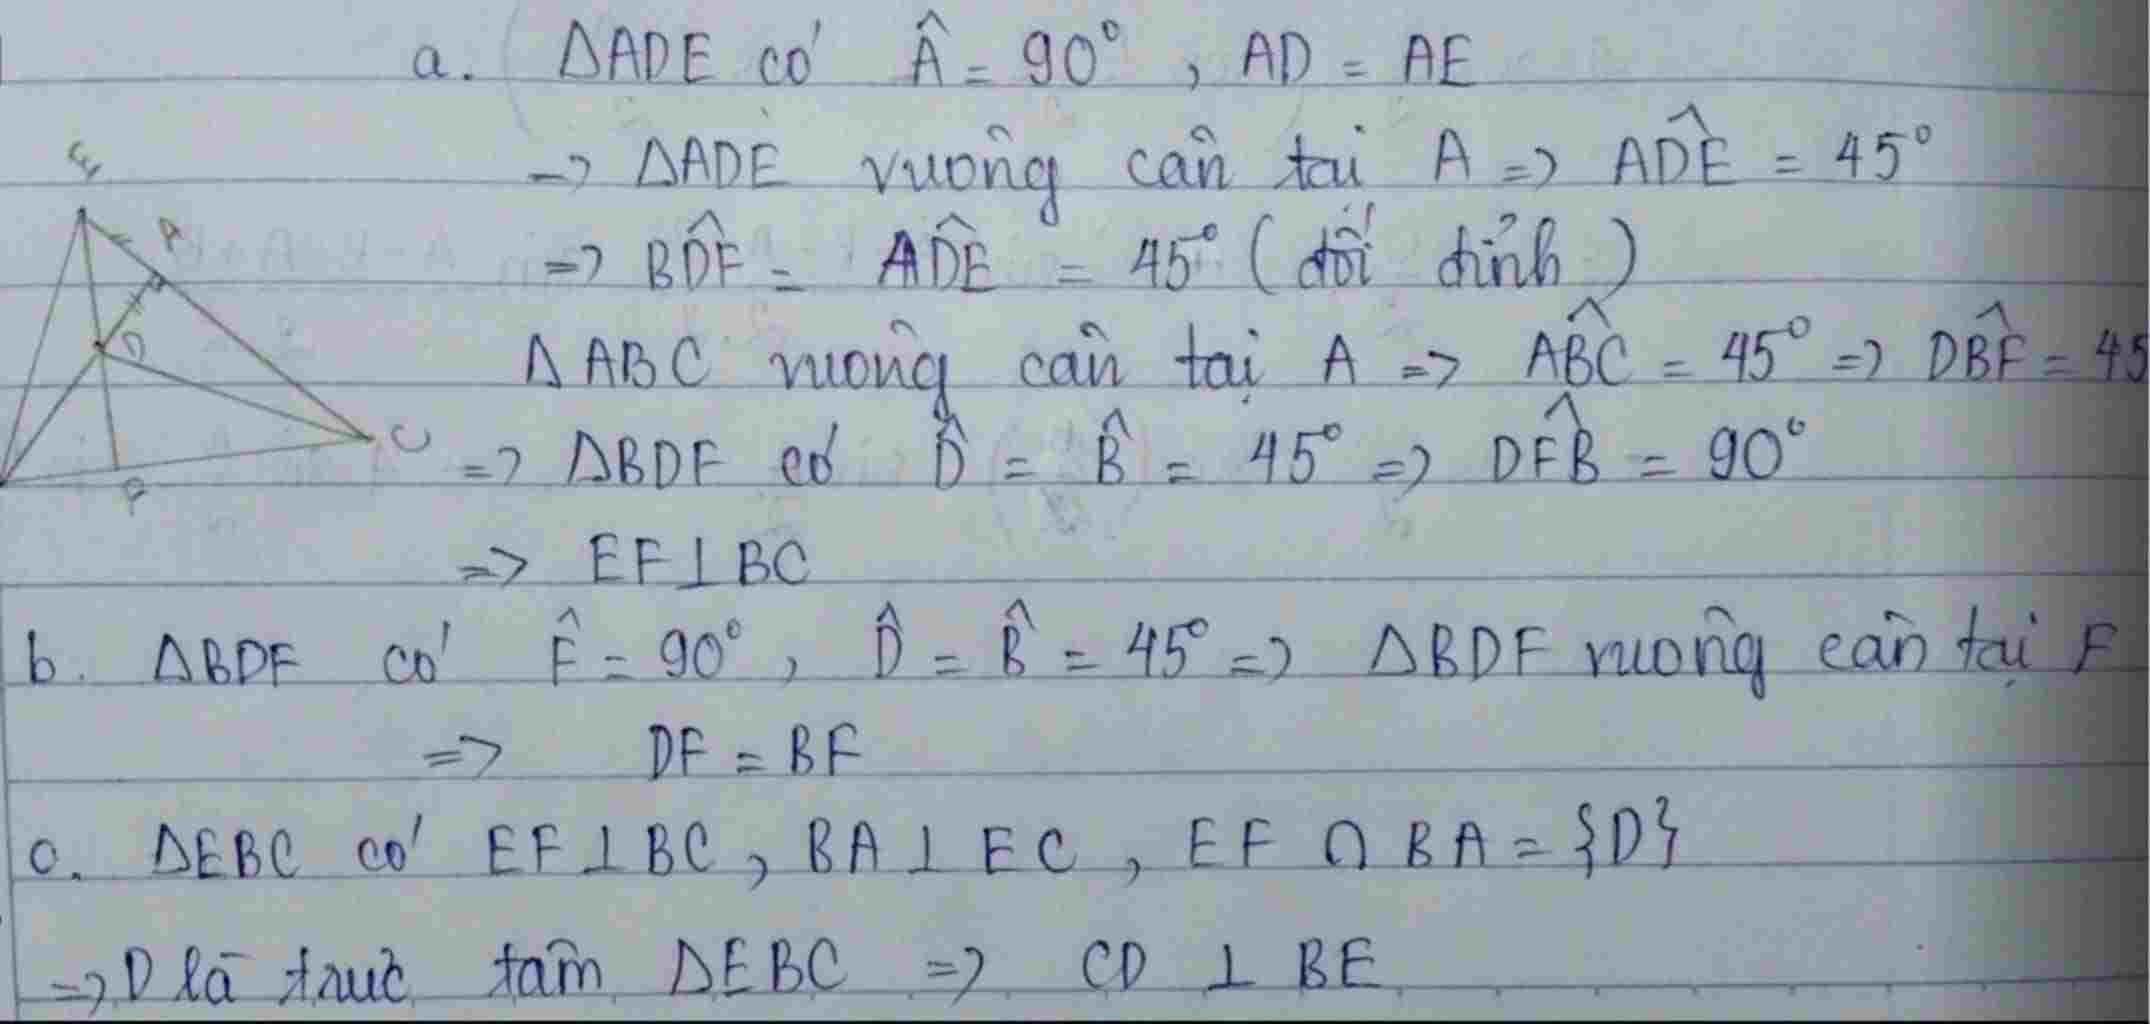 a. ΔADE có Â = 90°, AD = AE
=> ΔADE vuông cân tại A => AD̂E = 45°
=> BD̂F = AD̂E = 45° (đối đỉnh)
ΔABC vuông cân tại A => AB̂C = 45° => DB̂F = 45
=> ΔBDF có D̂ = B̂ = 45° => DF̂B = 90°
=> EF⊥BC
b. ΔBDF có F̂ = 90°, D̂ = B̂ = 45° => ΔBDF vuông cân tại F
=> DF = BF
c. ΔEBC có EF⊥BC, BA⊥EC, EF ∩ BA = {D}
=> D là trực tâm ΔEBC => CD ⊥ BE
E
A
D
C
F